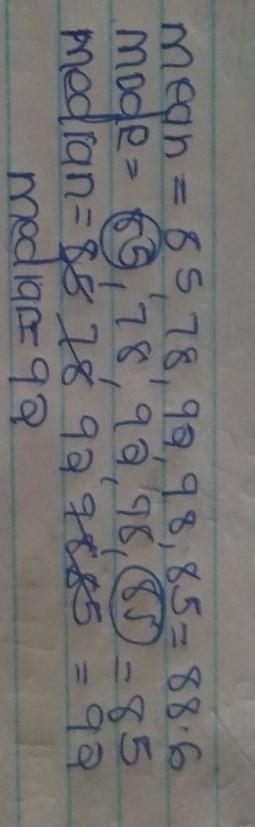 mean = 85, 78, 92, 98, 85 = 88.6
mode = 85, 78, 92, 98, 85 = 85
median = 85 78 92 98 85 = 92
median = 92